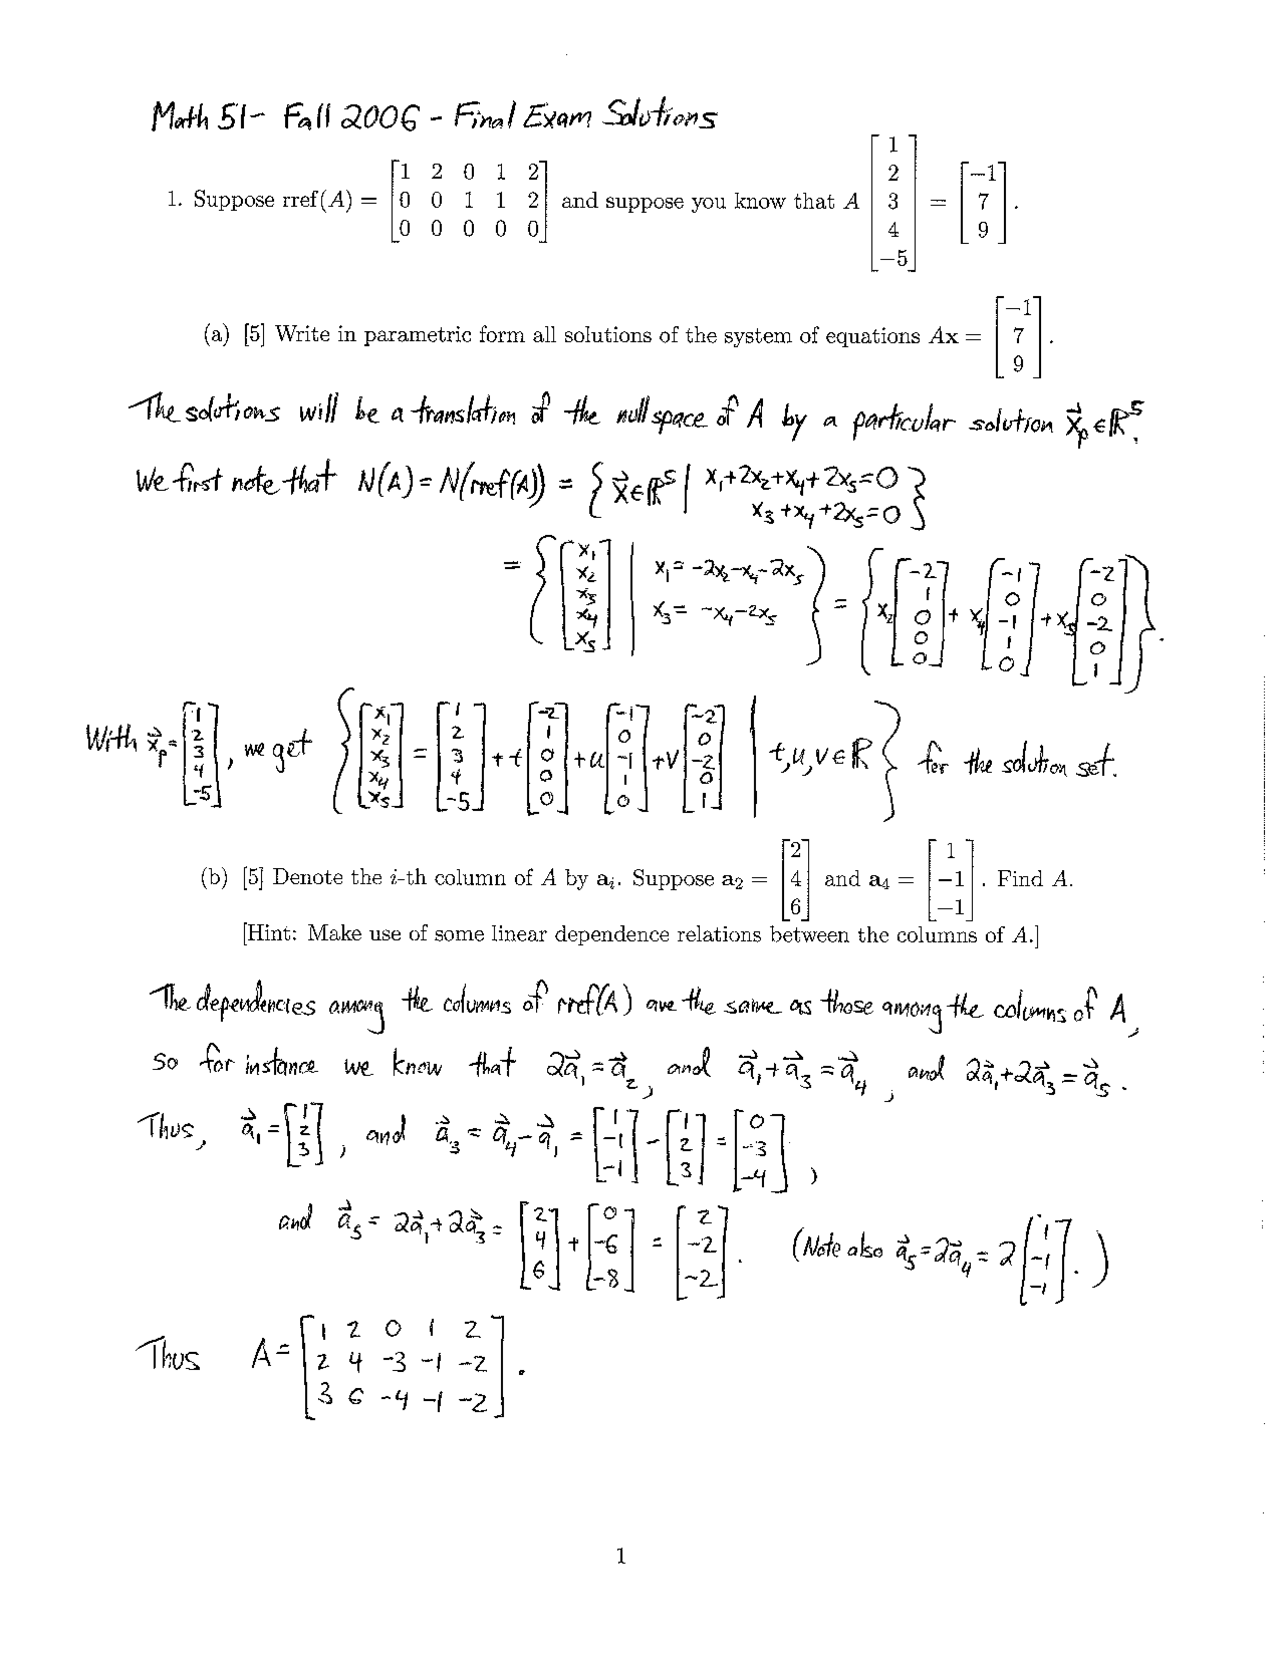 Math 51 - Fall 2006 - Final Exam Solutions
1. Suppose rref(A) = [1 2 0 1 2; 0 0 1 1 2; 0 0 0 0 0] and suppose you know that A [1; 2; 3; 4; −5] = [−1; 7; 9].
(a) [5] Write in parametric form all solutions of the system of equations Ax = [−1; 7; 9].
The solutions will be a translation of the nullspace of A by a particular solution x⃗p ∈ ℝ⁵.
We first note that N(A) = N(rref(A)) = { x⃗ ∈ ℝ⁵ | x₁+2x₂+x₄+2x₅=0
x₃+x₄+2x₅=0 }
= { [x₁; x₂; x₃; x₄; x₅] | x₁ = -2x₂-x₄-2x₅
x₃ = -x₄-2x₅ } = { x₂ [-2; 1; 0; 0; 0] + x₄ [-1; 0; -1; 1; 0] + x₅ [-2; 0; -2; 0; 1] }.
With x⃗p = [1; 2; 3; 4; -5], we get { [x₁; x₂; x₃; x₄; x₅] = [1; 2; 3; 4; -5] + t [-2; 1; 0; 0; 0] + u [-1; 0; -1; 1; 0] + v [-2; 0; -2; 0; 1] | t,u,v ∈ ℝ } for the solution set.
(b) [5] Denote the i-th column of A by aᵢ. Suppose a₂ = [2; 4; 6] and a₄ = [1; −1; −1]. Find A.
[Hint: Make use of some linear dependence relations between the columns of A.]
The dependencies among the columns of rref(A) are the same as those among the columns of A,
so for instance we know that 2a⃗₁ = a⃗₂, and a⃗₁+a⃗₃ = a⃗₄, and 2a⃗₁+2a⃗₃ = a⃗₅.
Thus, a⃗₁ = [1; 2; 3], and a⃗₃ = a⃗₄-a⃗₁ = [1; -1; -1] - [1; 2; 3] = [0; -3; -4],
and a⃗₅ = 2a⃗₁+2a⃗₃ = [2; 4; 6] + [0; -6; -8] = [2; -2; -2]. (Note also a⃗₅ = 2a⃗₄ = 2[1; -1; -1].)
Thus A = [1 2 0 1 2; 2 4 -3 -1 -2; 3 6 -4 -1 -2].
1